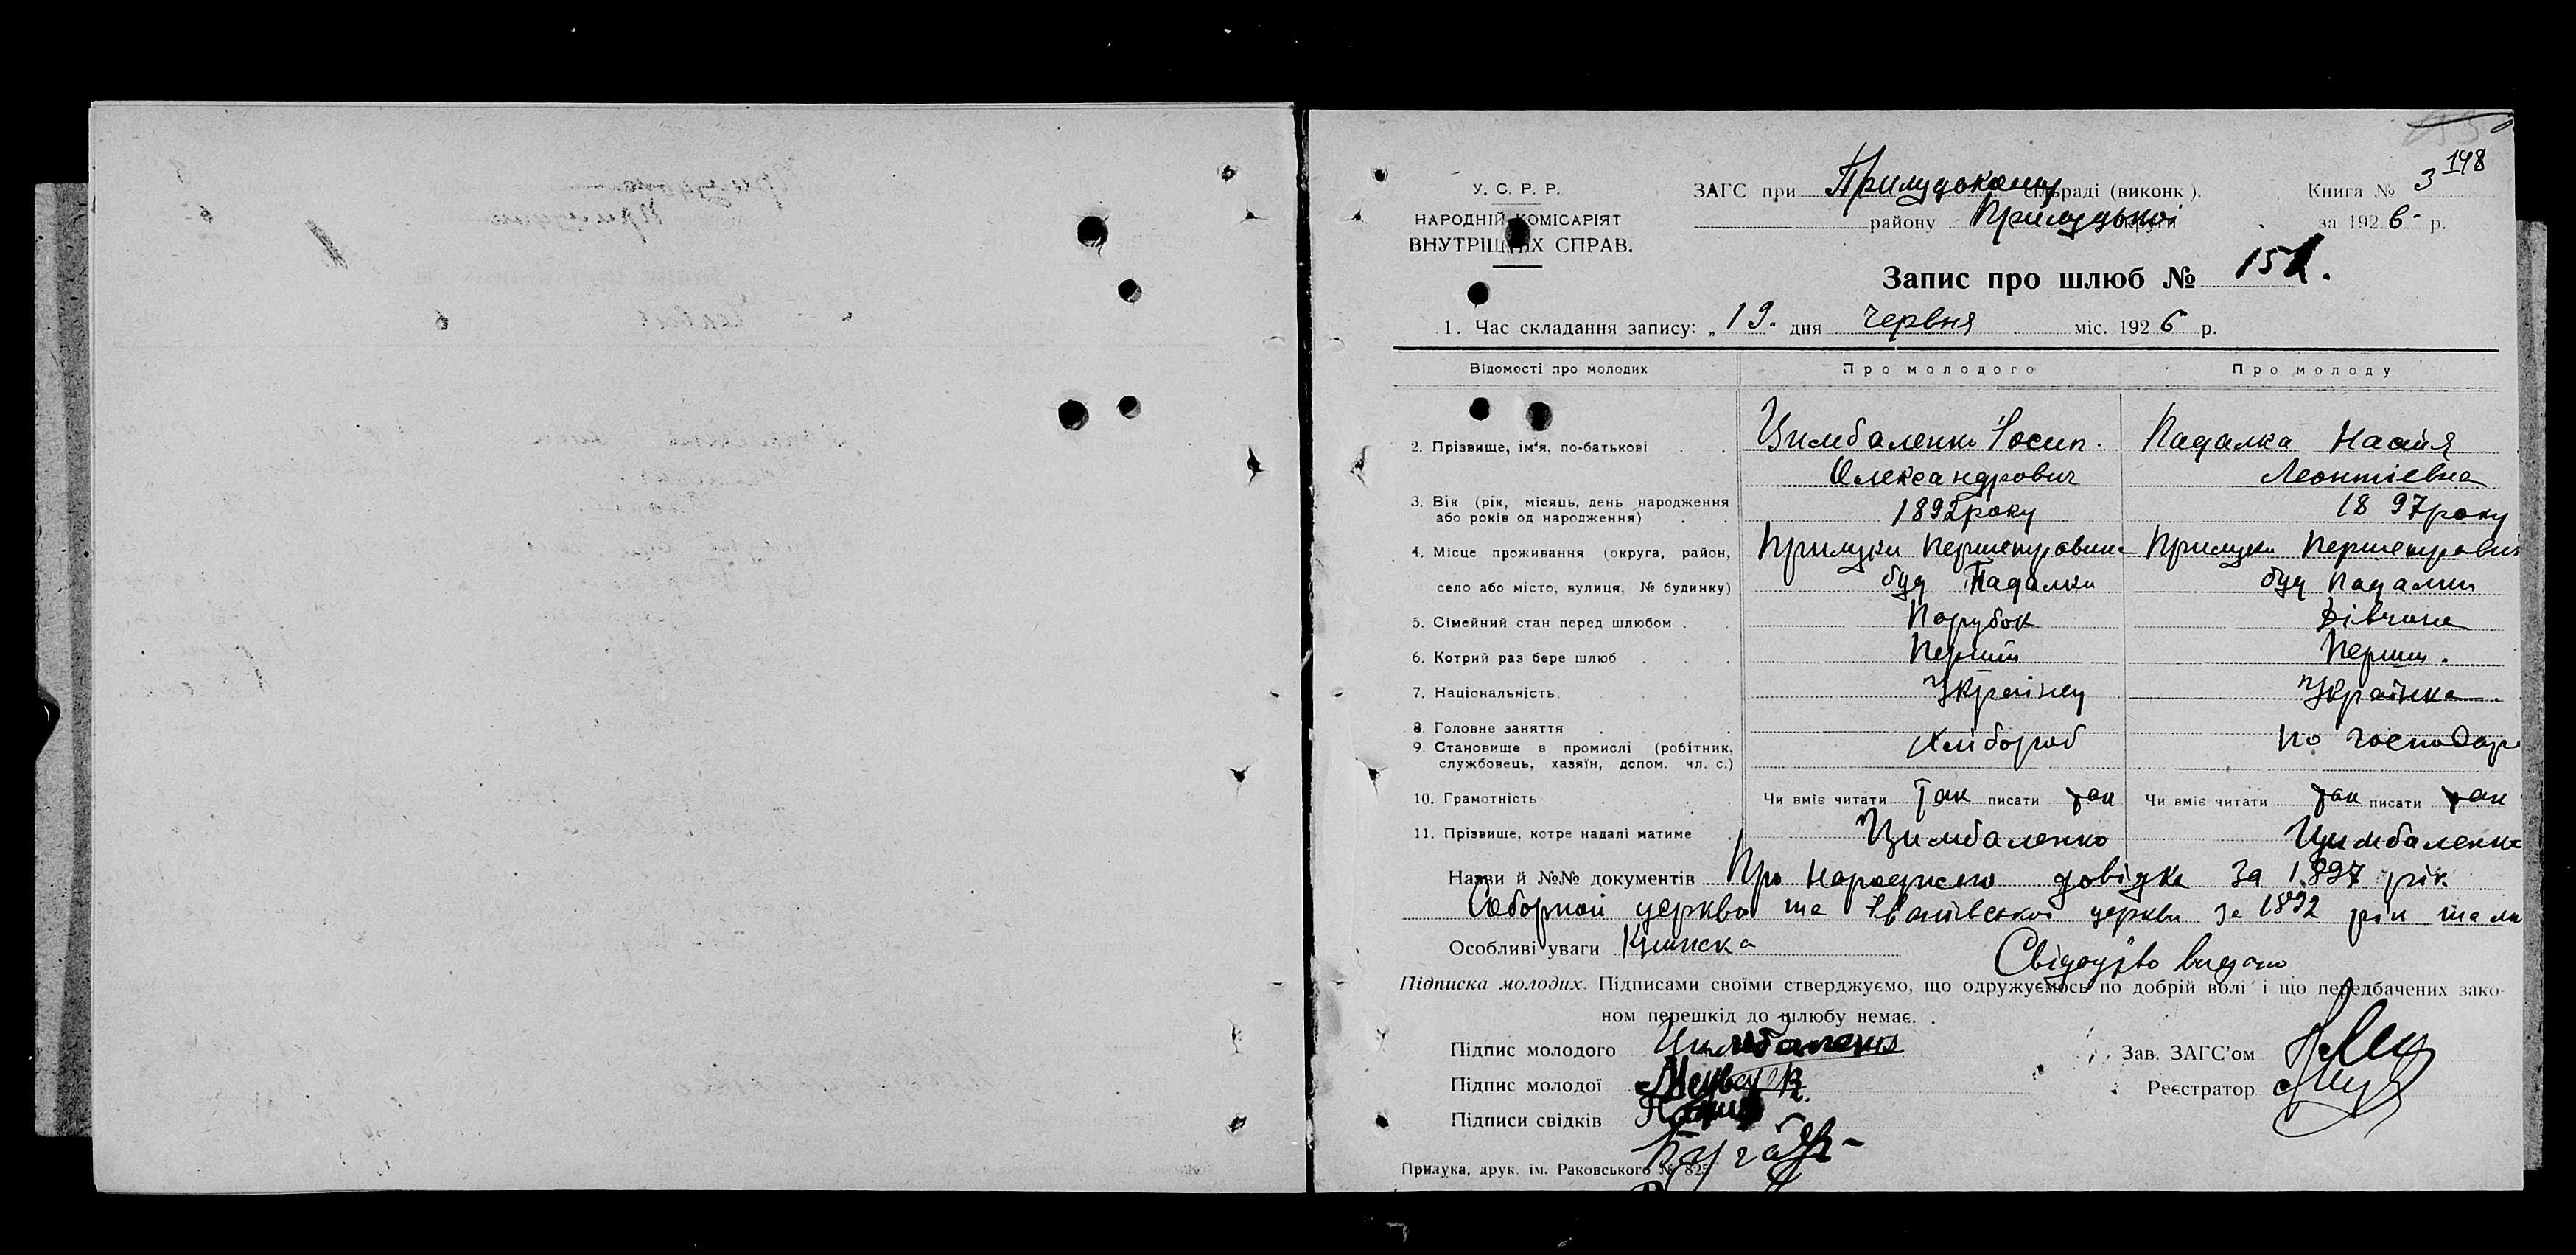 148
У. С. Р. Р.
НАРОДНІЙ КОМІСАРІЯТ
ВНУТРІШНІХ СПРАВ.
ЗАГС при Прилуцькому сільраді (виконк ). Книга № 3
району Прилуцької округи за 1926 р.
Запис про шлюб № 151.
1. Час складання запису: „ 19. дня Червня міс. 1926 р.
Відомості про молодих Про молодого Про молоду
2. Прізвище, ім'я, по-батькові Цимбаленко Йосип. Падалка Настя
Олександрович Леонтіевна
3. Вік (рік, місяць, день народження
або років од народження) 1892 року 1897 року
4. Місце проживання (округа, район, Прилуки Прилуки
село або місто, вулиця, № будинку) буд Падалки буд Падалки
5. Сімейний стан перед шлюбом . Парубок Дівчина
6. Котрий раз бере шлюб Перший Перший.
7. Національність Українец Українка
8. Головне заняття
9. Становище в промислі (робітник, Хлібороб по господар
службовець, хазяїн, допом. чл. с.)
10. Грамотність Чи вміє читати Так писати так Чи вміє читати так писати так
11. Прізвище, котре надалі матиме Цимбаленко Цимбаленко
Назви й №№ документів Про довідка за 1897 рік
Соборной церкви та Іванівської церкви за 1892 рік та
Особливі уваги
Свідоцтво видано
Підписка молодих. Підписами своїми стверджуємо, що одружуємось по добрій волі і що передбачених зако-
ном перешкід до шлюбу немає.
Підпис молодого Цимбаленко Зав. ЗАГС'ом
Підпис молодої Реєстратор
Підписи свідків
Прилука, друк. ім. Раковського № 825